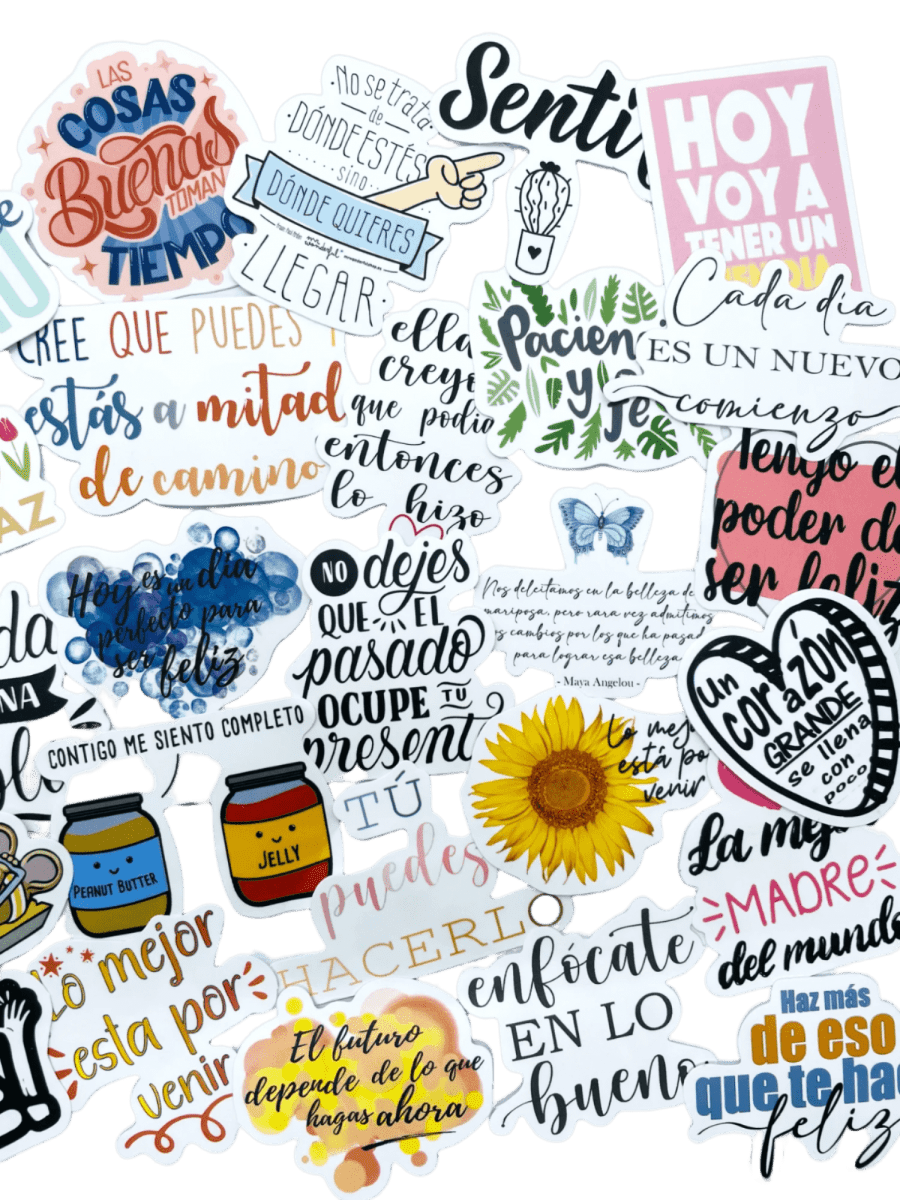 LAS
COSAS
Buenas
TOMAN
TIEMPO
No se trata
de
DÓNDE ESTÉS
sino
DÓNDE QUIERES
LLEGAR
Senti
HOY
VOY A
TENER UN
Cada día
ES UN NUEVO
comienzo
CREE QUE PUEDES Y
estás a mitad
de camino
ella
creyó
que podía
entonces
lo hizo
Pacien
y
fe
Tengo el
poder de
ser feliz
AZ
Hoy es un día
perfecto para
ser feliz
NO dejes
QUE EL
pasado
OCUPE TU
present
Nos deleitamos en la belleza de
mariposa, pero rara vez admitimos
cambios por los que ha pasad
para lograr esa belleza
- Maya Angelou -
Un
corazón
GRANDE
se llena
con
poco
da
NA
CONTIGO ME SIENTO COMPLETO
PEANUT BUTTER
JELLY
TÚ
puedes
HACERLO
Lo mejo
está po
venir
La mej
MADRE
del mundo
Lo mejor
esta por
venir
El futuro
depende de lo que
hagas ahora
enfócate
EN LO
bueno
Haz más
de eso
que te hac
feliz